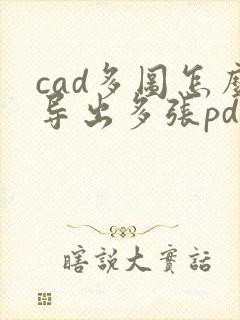 cad多圖怎麼
导出多張pd
瞎說大實話